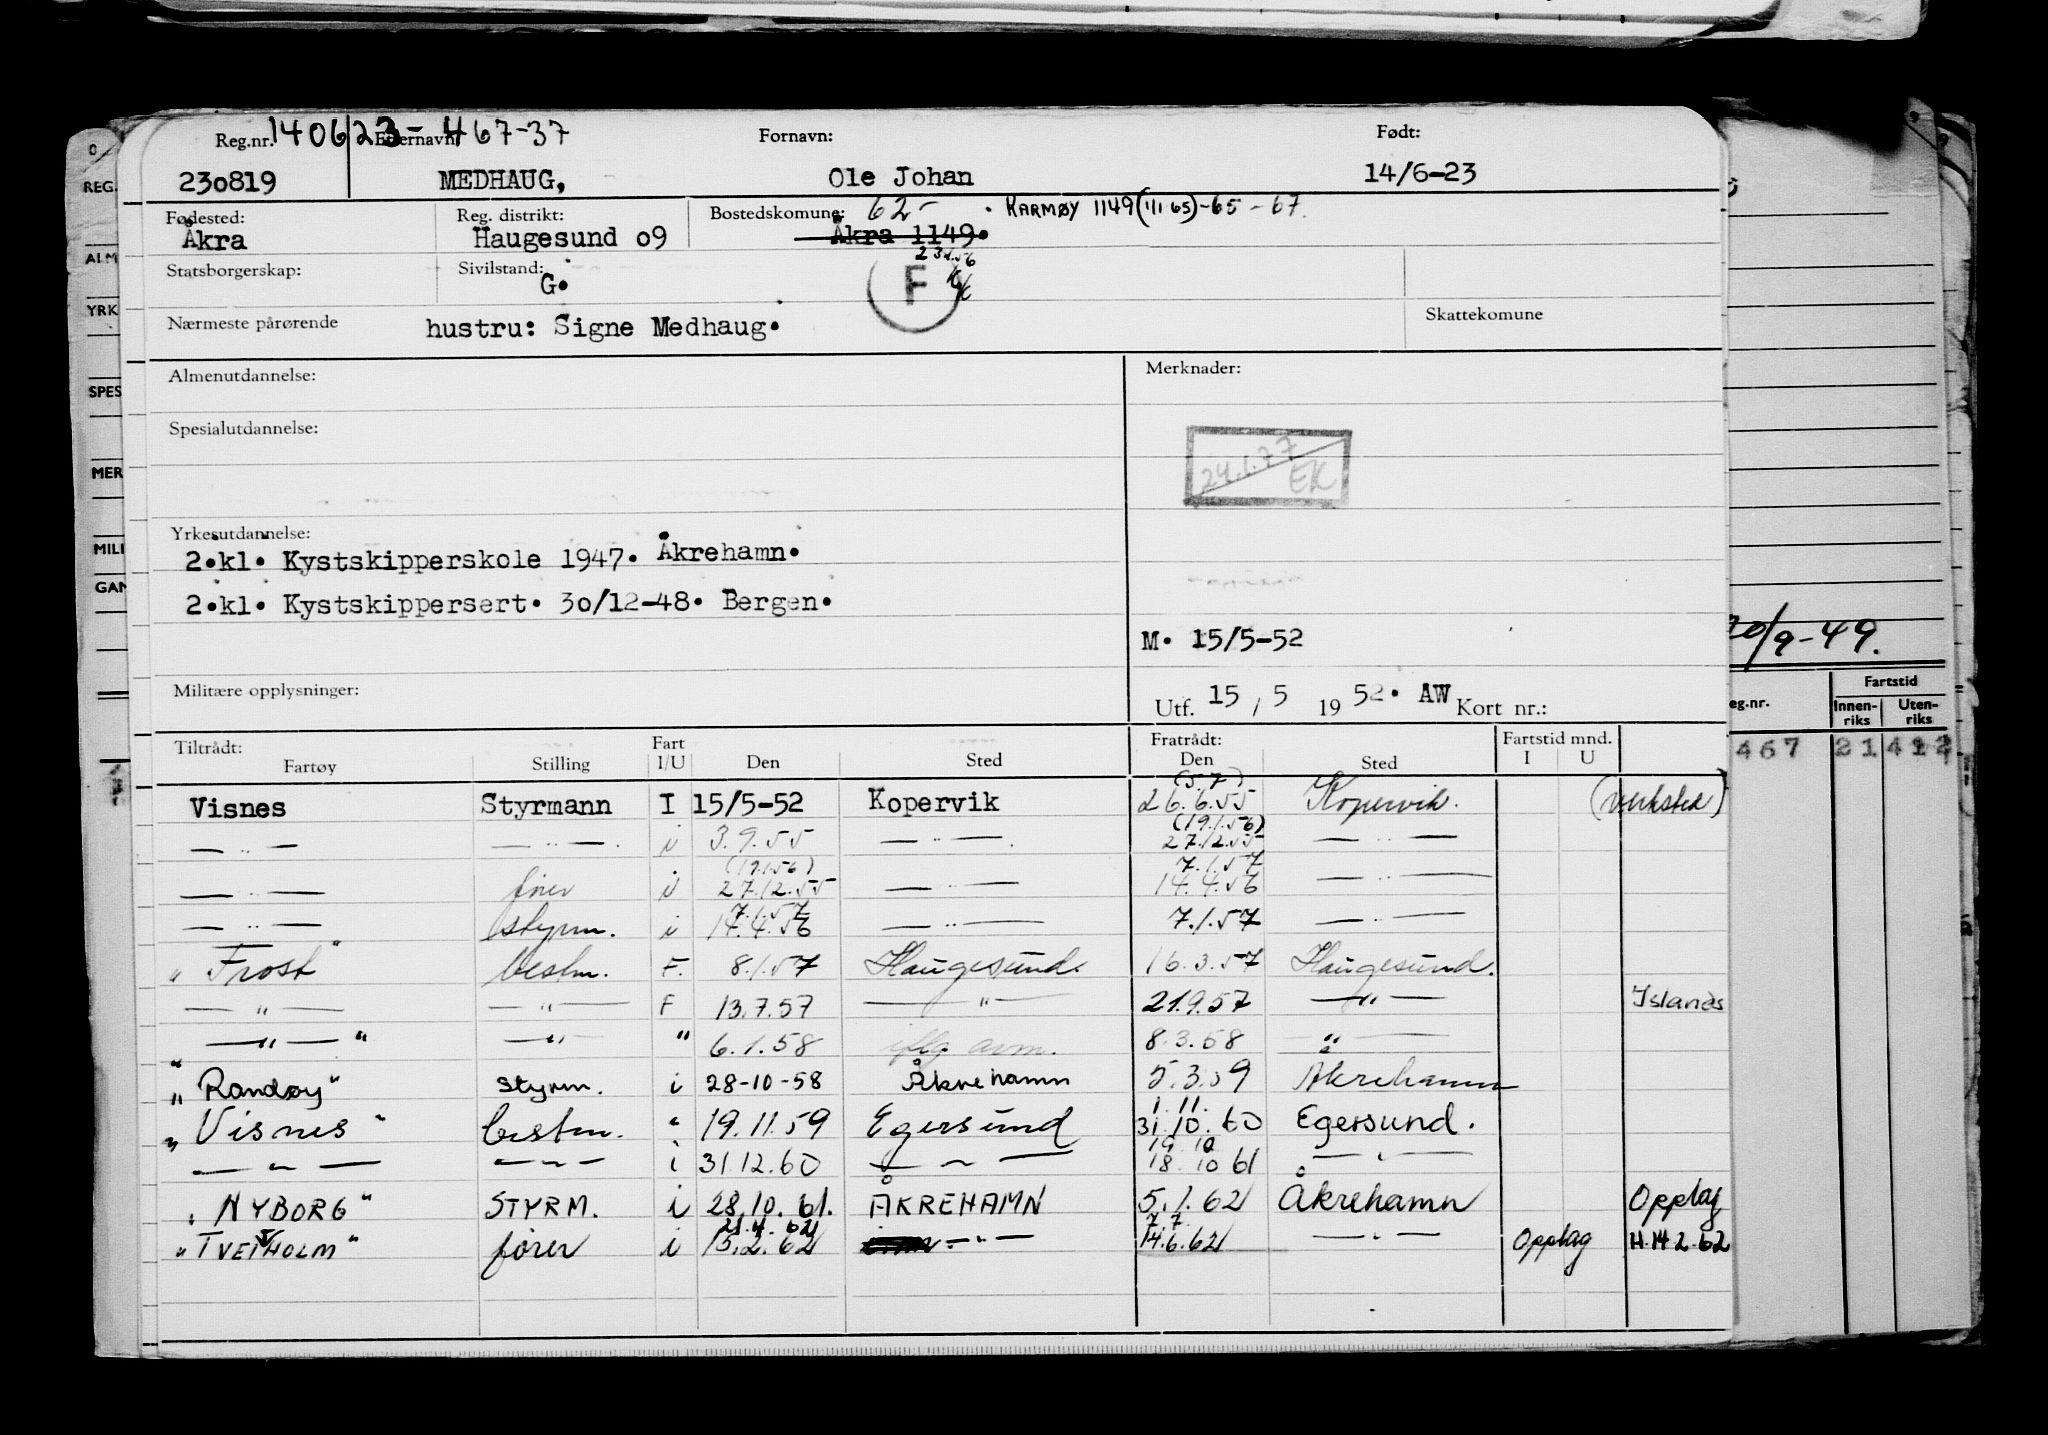 Reg.nr. 140623-46737 Etternavn: Fornavn: Født:
230819 MEDHAUG, Ole Johan 14/6-23
Fødested: Reg. distrikt: Bostedskomune: 62- . KARMØY 1149(1/1 65)-65-67.
Åkra Haugesund 09 Åkra 1149.
Statsborgerskap: Sivilstand: G. F
Nærmeste pårørende hustru: Signe Medhaug. Skattekomune
Almenutdannelse: Merknader:
Spesialutdannelse:
24.1.77 EK
Yrkesutdannelse:
2.kl. Kystskipperskole 1947. Åkrehamn.
2.kl. Kystskippersert. 30/12-48. Bergen.
M. 15/5-52
Militære opplysninger: Utf. 15 / 5 19 52. AW Kort nr.:
Tiltrådt: Fart Fratrådt: Fartstid mnd.
Fartøy Stilling I/U Den Sted Den Sted I U
(5.7)
Visnes Styrmann I 15/5-52 Kopervik 26.6.55 Kopervik. (verksted)
(19.1.56)
— " — — " — i 3.9.55 — " — 27.12.55 — " —
(19.1.56) 7.1.57
— " — fører i 27.12.55 — " — 14.4.56 — " —
7.1.57
— " — styrm. i 14.4.56 — " — 7.1.57 — " —
"Frost" bestm. F. 8.1.57 Haugesund. 16.3.57 Haugesund.
— " — — " — F 13.7.57 — " — 21.9.57 — " — Islands
" — " — " — " — " 6.1.58 iflg avm. 8.3.58 — " —
"Randøy" styrm. i 28-10-58 Åkrehamn 5.3.59 Åkrehamn
1.11.
"Visnes" bestm. " 19.11.59 Egersund 31.10.60 Egersund.
19.10
— " — — " — i 31.12.60 — " — 18.10 61 — " —
"NYBORG" STYRM. i 28.10.61. ÅKREHAMN 5.1.62 Åkrehamn Opplag
21.4.62 7.7
"TVEITHOLM" fører i 15.2.62 — " — 14.6.62 — " — Opplag H.14.2.62
REG.
ALM
YRK
SPES
MER
MILI
GAN
/9-49.
Fartstid
eg.nr. Innen-riks Uten-riks
467 21 412